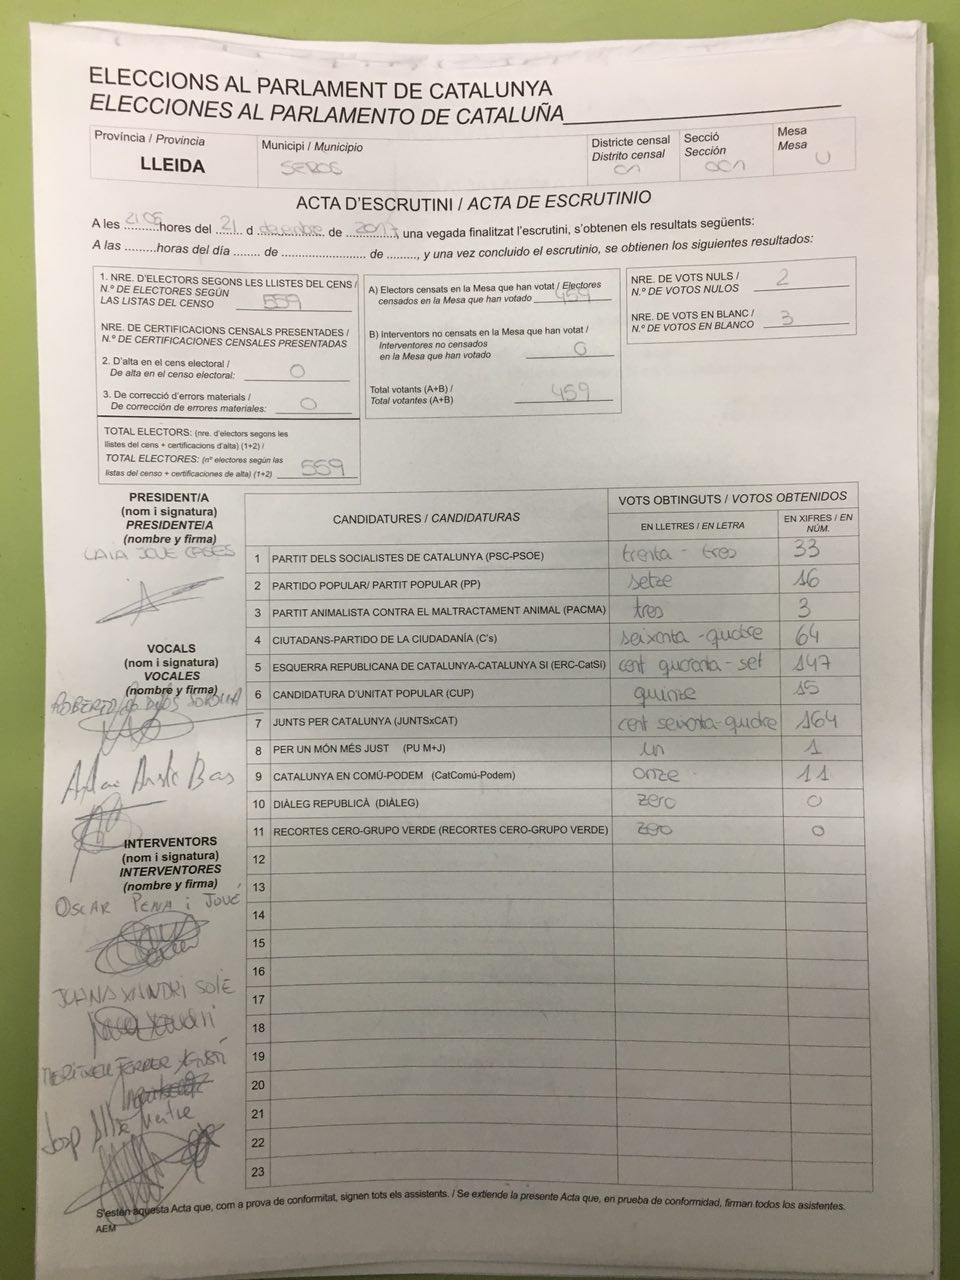 ELECCIONS AL PARLAMENT DE CATALUNYA
ELECCIONES AL PARLAMENTO DE CATALUÑA
Província / Provincia
LLEIDA
Municipi / Municipio
SEROS
Districte censal
Distrito censal
01
Secció
Sección
001
Mesa
Mesa
U
ACTA D'ESCRUTINI / ACTA DE ESCRUTINIO
A les 21 05 hores del 21 d desembre de 2017, una vegada finalitzat l'escrutini, s'obtenen els resultats següents:
A las .........horas del día ....... de ....................... de ........., y una vez concluido el escrutinio, se obtienen los siguientes resultados:
1. NRE. D'ELECTORS SEGONS LES LLISTES DEL CENS /
N.º DE ELECTORES SEGÚN
LAS LISTAS DEL CENSO 559
NRE. DE CERTIFICACIONS CENSALS PRESENTADES /
N.º DE CERTIFICACIONES CENSALES PRESENTADAS
2. D'alta en el cens electoral /
De alta en el censo electoral: 0
3. De correcció d'errors materials /
De corrección de errores materiales: 0
TOTAL ELECTORS: (nre. d'electors segons les
llistes del cens + certificacions d'alta) (1+2) /
TOTAL ELECTORES: (nº electores según las
listas del censo + certificaciones de alta) (1+2) 559
A) Electors censats en la Mesa que han votat / Electores
censados en la Mesa que han votado 459
B) Interventors no censats en la Mesa que han votat /
Interventores no censados
en la Mesa que han votado 0
Total votants (A+B) /
Total votantes (A+B) 459
NRE. DE VOTS NULS /
N.º DE VOTOS NULOS 2
NRE. DE VOTS EN BLANC /
N.º DE VOTOS EN BLANCO 3
PRESIDENT/A
(nom i signatura)
PRESIDENTE/A
(nombre y firma)
LAIA JOVE
VOCALS
(nom i signatura)
VOCALES
(nombre y firma)
ROBERTO
INTERVENTORS
(nom i signatura)
INTERVENTORES
(nombre y firma)
OSCAR PENA i JOVÉ
JOANA XANDRI SOLÉ
MERITXELL FERRER AGUSTÍ
Josep
CANDIDATURES / CANDIDATURAS
VOTS OBTINGUTS / VOTOS OBTENIDOS
EN LLETRES / EN LETRA
EN XIFRES / EN NÚM.
1 PARTIT DELS SOCIALISTES DE CATALUNYA (PSC-PSOE) trenta - tres 33
2 PARTIDO POPULAR/ PARTIT POPULAR (PP) setze 16
3 PARTIT ANIMALISTA CONTRA EL MALTRACTAMENT ANIMAL (PACMA) tres 3
4 CIUTADANS-PARTIDO DE LA CIUDADANÍA (C's) seixanta - quatre 64
5 ESQUERRA REPUBLICANA DE CATALUNYA-CATALUNYA SÍ (ERC-CatSí) cent quaranta - set 147
6 CANDIDATURA D'UNITAT POPULAR (CUP) quinze 15
7 JUNTS PER CATALUNYA (JUNTSxCAT) cent seixanta-quatre 164
8 PER UN MÓN MÉS JUST (PU M+J) un 1
9 CATALUNYA EN COMÚ-PODEM (CatComú-Podem) onze 11
10 DIÀLEG REPUBLICÀ (DIÀLEG) zero 0
11 RECORTES CERO-GRUPO VERDE (RECORTES CERO-GRUPO VERDE) zero 0
12
13
14
15
16
17
18
19
20
21
22
23
S'estén aquesta Acta que, com a prova de conformitat, signen tots els assistents. / Se extiende la presente Acta que, en prueba de conformidad, firman todos los asistentes.
AEM